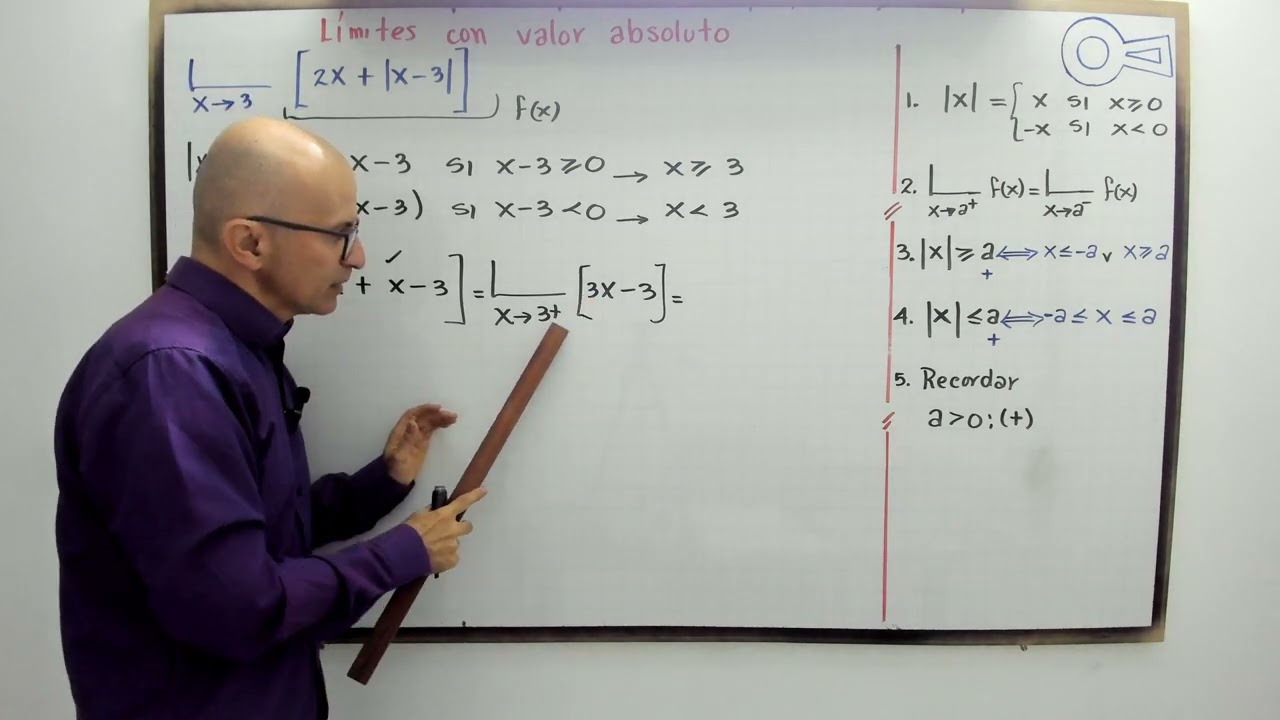 Límites con valor absoluto
L [2x + |x-3|]
x→3
f(x)
x-3 si x-3≥0 → x≥3
x-3) si x-3<0 → x<3
✓
+ x-3] = L [3x-3] =
x→3+
1. |x| = { x si x≥0
-x si x<0
2. L f(x) = L f(x)
x→a⁺ x→a⁻
3. |x| ≥ a ⟺ x≤-a v x≥a
+
4. |x| ≤ a ⟺ -a ≤ x ≤ a
+
5. Recordar
a>0: (+)